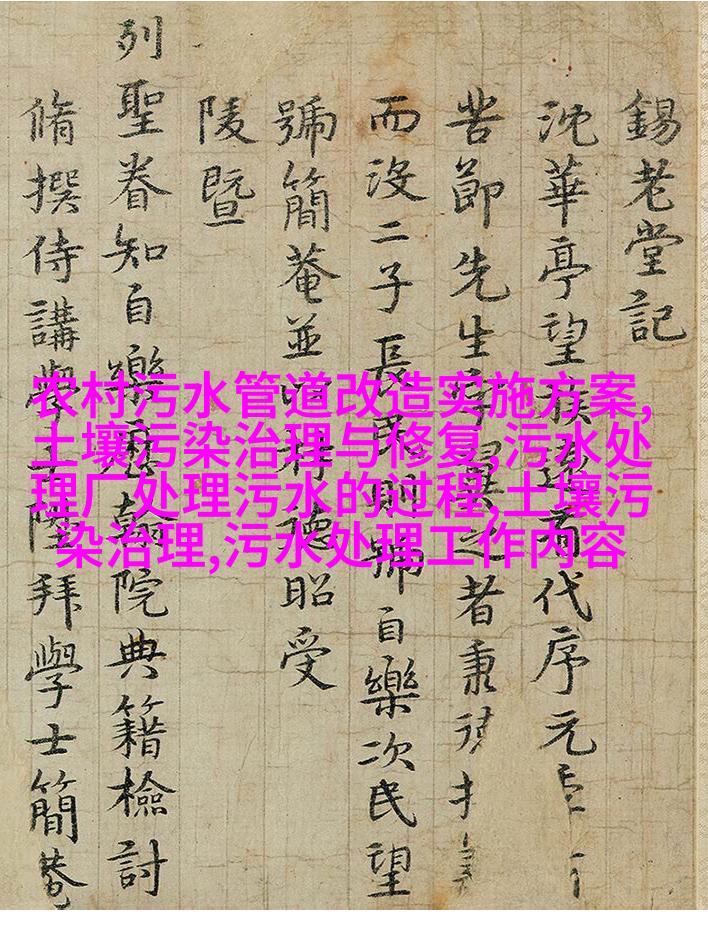 錫老堂記
沈華亭望族遠有代序元
苦節先生之者秉
而沒二子長民則號自樂次民望
號簡菴並昭受
陵暨
列聖眷知自樂翰院典籍檢討
脩撰侍講學士陞拜學士簡菴
农村污水管道改造实施方案,
土壤污染治理与修复,污水处
理厂处理污水的过程,土壤污
染治理,污水处理工作内容